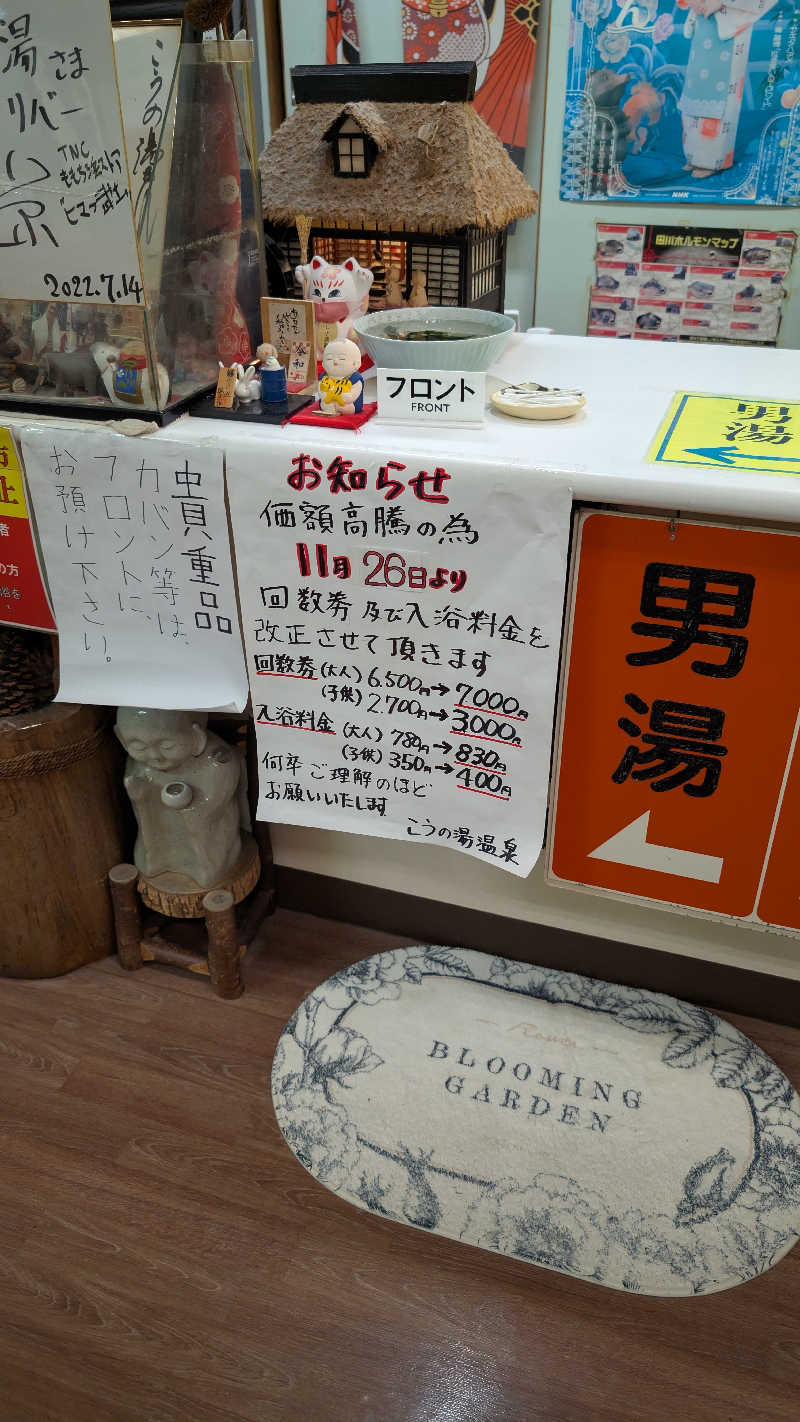 湯さま
リバー
TNC
ももち浜ストア
2022.7.14
こうの湯
NHK
田川ホルモンマップ
令和
フロント
FRONT
男湯
貴重品
カバン等は、
フロントに、
お預け下さい。
お知らせ
価額高騰の為
11月26日より
回数券及び入浴料金を
改正させて頂きます
回数券(大人)6.500円→7000円
(子供)2.700円→3000円
入浴料金(大人)780円→830円
(子供)350円→400円
何卒ご理解のほど
お願いいたします
こうの湯温泉
男湯
BLOOMING
GARDEN